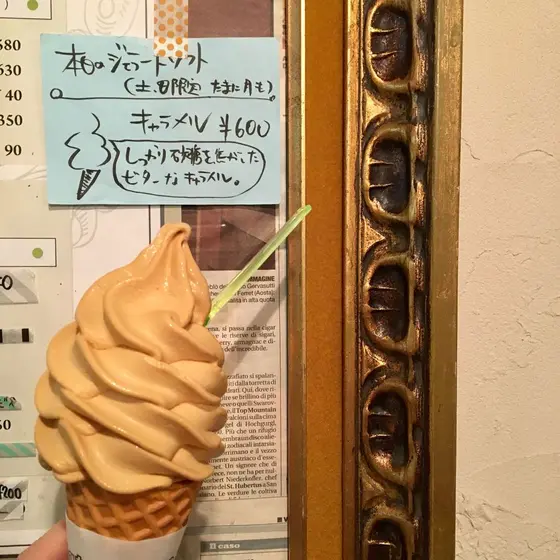 本日のジェラートソフト
(土日限定 たまに月も)
キャラメル ¥600
しっかり砂糖を焦がした
ビターなキャラメル。
580
630
40
350
90
50
¥200
IMMAGINE
Gervasutti
Ferret (Aosta):
in alta quota
si passa nella cigar
le riverse di sigari,
armagnac e di-
dell'incredibile.
si spalan-
dalla torretta di
Qui, dove ri-
se brillino di più
o quelli Swarov-
il Top Mountain
calcioni sulla cima
di Hochgurgl,
Più che un rifugio
membra un disco alie-
zodiacali intarsia-
e il vezzo
austriaco d'esse-
Un signore che di
non ne ha per nul-
Norbert Niederkofler, chef
del St. Hubertus a San
Le verdure le coltiva
Il caso